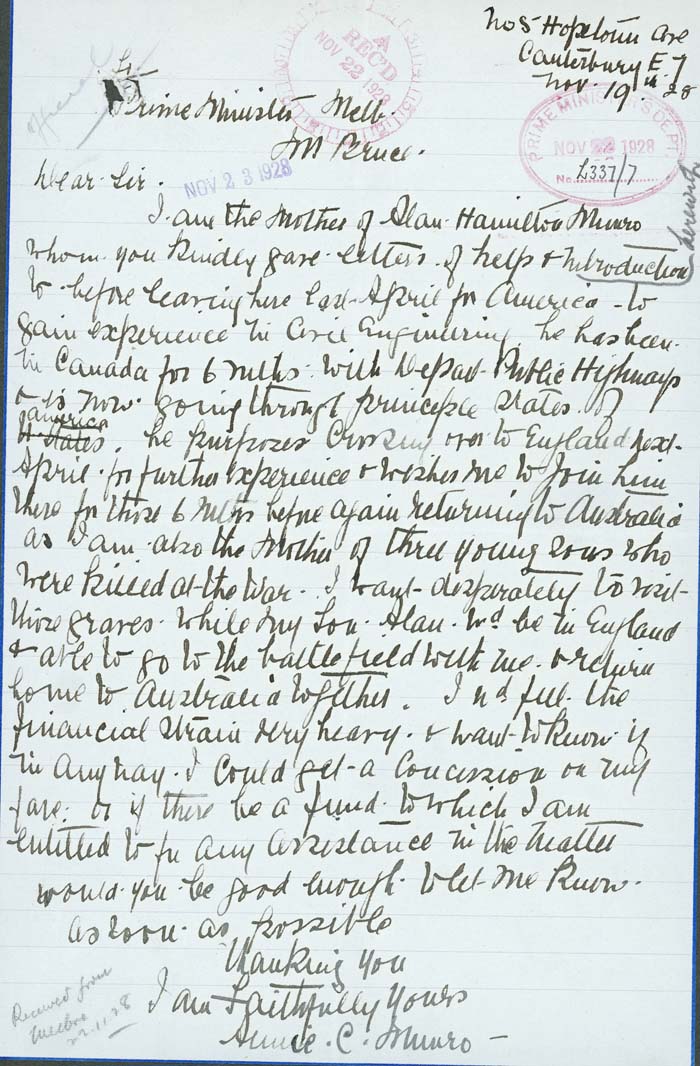 No 5 Hopetoun Ave
Canterbury E 7
Nov. 19th 28
A
REC'D
NOV 22 1928
PRIME MINISTER'S DEPT
NOV 22 1928
No. L337/7
Prime Minister Melb.
Mr Bruce.
NOV 23 1928
Dear Sir.
I am the Mother of Alan Hamilton Munro
whom you kindly gave letters of help & introduction
to before leaving here last April for America to
gain experience in Civil Engineering, he has been
in Canada for 6 mths with Depart Public Highways
& is now going through principle states of
America
U States. he purposes crossing over to England next
April for further experience & wishes me to join him
there for those 6 mths before again returning to Australia
as I am also the Mother of three young sons who
were killed at the War. I want desparately to visit
those graves while my Son Alan wd be in England
& able to go to the battlefield with me & return
home to Australia together. I wd feel the
financial strain very heavy & want to know if
in anyway I could get a Concession on my
fare: or if there be a fund to which I am
entitled to for any assistance in the matter
would you be good enough to let me know
as soon as possible
Thanking you
I am Faithfully Yours
Annie. C. Munro
Received from
Melbne
22.11.28